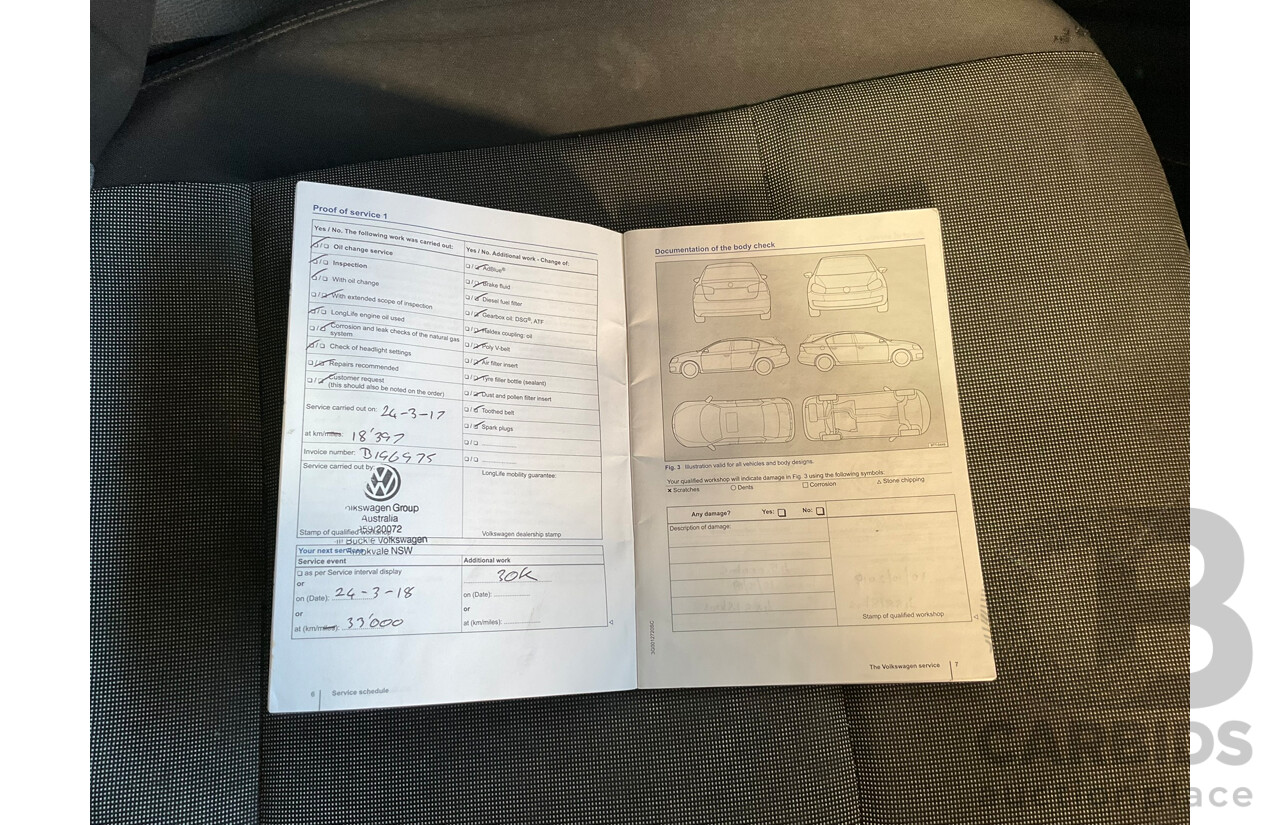 Proof of service 1
Yes / No. The following work was carried out:
Oil change service
Inspection
With oil change
With extended scope of inspection
LongLife engine oil used
Corrosion and leak checks of the natural gas
system
Check of headlight settings
Repairs recommended
Customer request
(this should also be noted on the order)
Service carried out on: 24-3-17
at km/miles: 18'397
Invoice number: B196975
Service carried out by:
Stamp of qualified
Volkswagen Group
Australia
20072
Buckle Volkswagen
Brookvale NSW
Yes / No. Additional work - Change of:
AdBlue®
Brake fluid
Diesel fuel filter
Gearbox oil: DSG®, ATF
Haldex coupling: oil
Poly V-belt
Air filter insert
Tyre filler bottle (sealant)
Dust and pollen filter insert
Toothed belt
Spark plugs
LongLife mobility guarantee:
Volkswagen dealership stamp
Your next service
Service event
as per Service interval display
or
on (Date): 24-3-18
or
at (km/miles): 33'000
Additional work
30K
on (Date):
or
at (km/miles):
6 Service schedule
Documentation of the body check
Fig. 3 Illustration valid for all vehicles and body designs.
Your qualified workshop will indicate damage in Fig. 3 using the following symbols:
x Scratches ○ Dents □ Corrosion △ Stone chipping
Any damage? Yes: □ No: □
Description of damage:
Stamp of qualified workshop
The Volkswagen service 7
CARBIDS